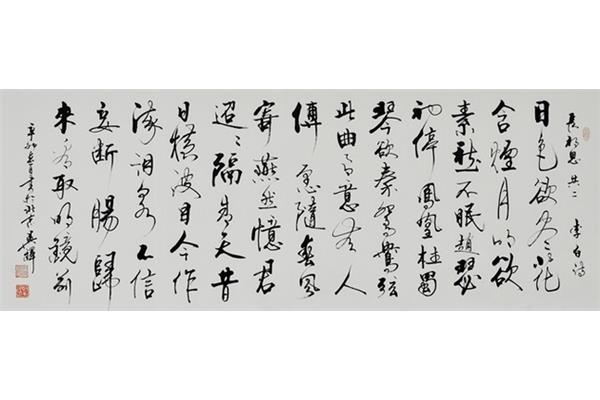 長相思 其二 李白詩
日色欲尽花
含煙月明欲
素愁不眠趙瑟
初停鳳凰柱蜀
琴欲奏鴛鴦弦
此曲有意無人
傳愿隨春風
寄燕然憶君
迢迢隔青天昔
日横波目今作
淚泉不信
妾断腸歸
来看取明鏡前
辛卯 書於北京